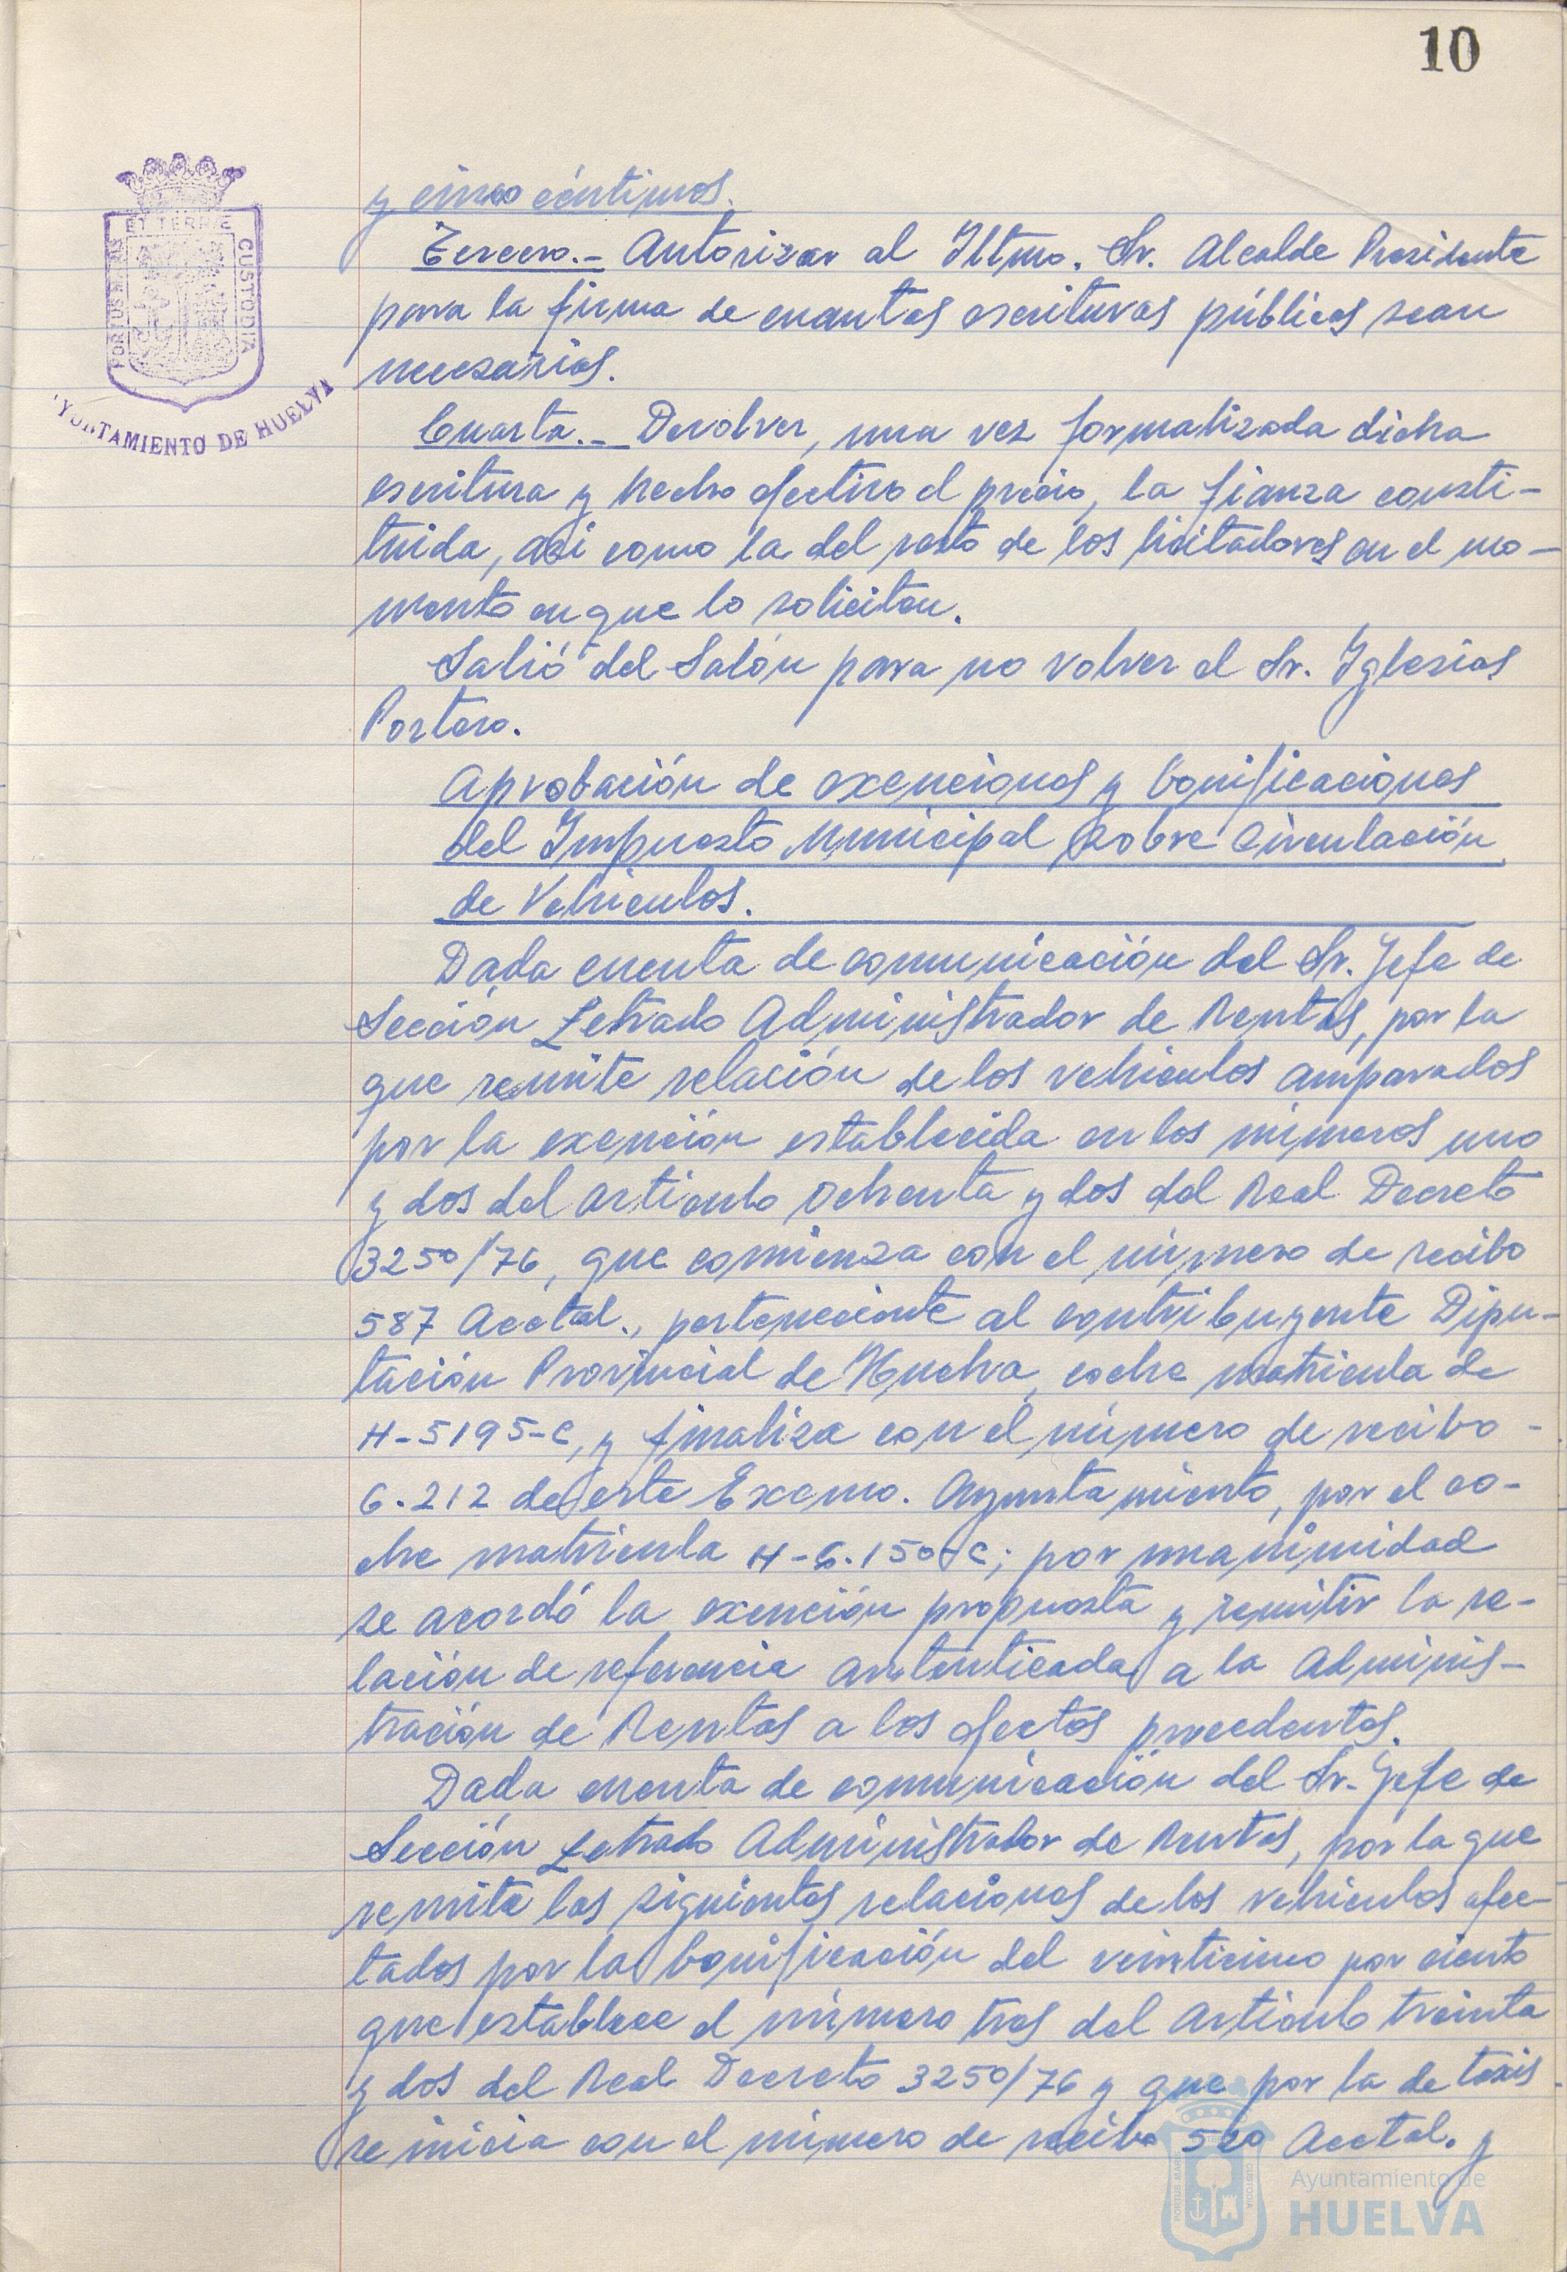 10
ET TERRÆ
PORTUS MARIS
CUSTODIA
AYUNTAMIENTO DE HUELVA
y cinco céntimos.
Tercero.- Autorizar al Iltmo. Sr. Alcalde Presidente
para la firma de cuantas escrituras públicas sean
necesarias.
Cuarta.- Devolver, una vez formalizada dicha
escritura y hecho efectivo el precio, la fianza consti-
tuida, asi como la del resto de los licitadores en el mo-
mento en que lo soliciten.
Salió del Salón para no volver el Sr. Iglesias
Portero.
Aprobación de exenciones y bonificaciones
del Impuesto Municipal sobre Circulación
de Vehiculos.
Dada cuenta de comunicación del Sr. Jefe de
Sección Letrado Administrador de Rentas, por la
que remite relación de los vehiculos amparados
por la exención establecida en los números uno
y dos del articulo ochenta y dos del Real Decreto
3250/76, que comienza con el número de recibo
587 Acctal., perteneciente al contribuyente Dipu-
tación Provincial de Huelva, coche matricula de
H-5195-C, y finaliza con el número de recibo -
6.212 de este Excmo. Ayuntamiento, por el co-
che matricula H-6.150-C; por unanimidad
se acordó la exención propuesta y remitir la re-
lación de referencia autenticada a la Adminis-
tración de Rentas a los efectos procedentes.
Dada cuenta de comunicación del Sr. Jefe de
Sección Letrado Administrador de Rentas, por la que
remite las siguientes relaciones de los vehiculos afec-
tados por la bonificación del veinticinco por ciento
que establece el número tres del Articulo treinta
y dos del Real Decreto 3250/76 y que por la de taxis
se inicia con el número de recibo 520 Acctal. y
PORTUS MARIS
CUSTODIA
Ayuntamiento de
HUELVA